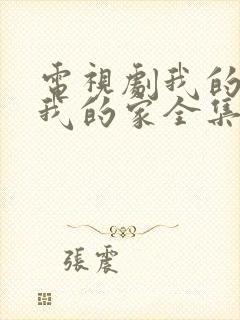 電視劇我的
我的家全集
張震